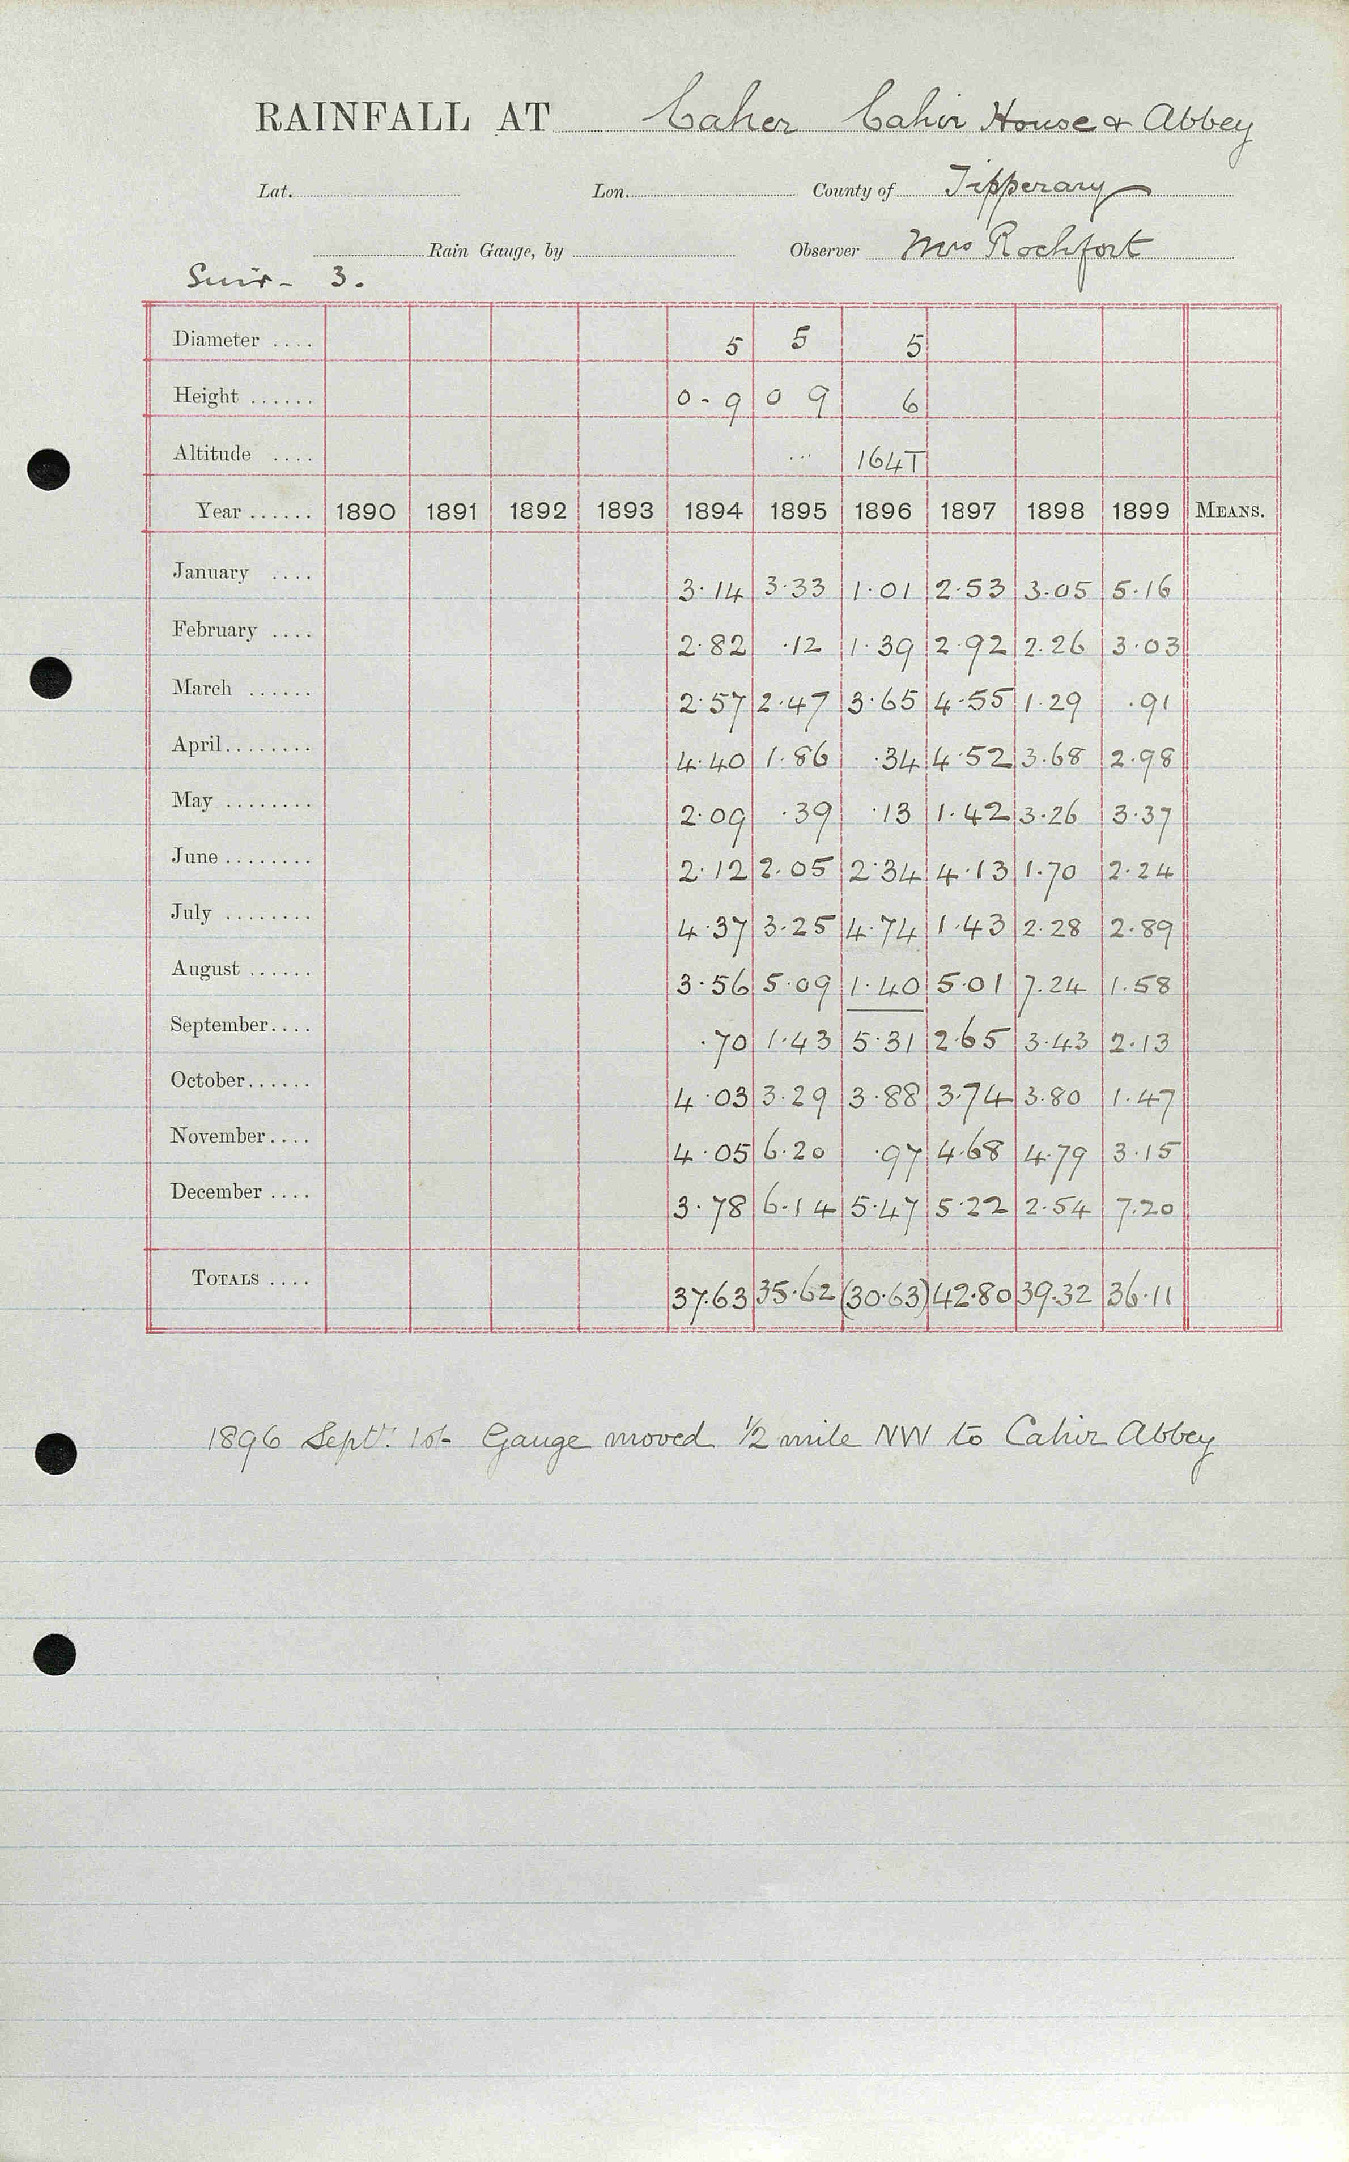 RAINFALL AT Caher Cahir House & Abbey
Lat. Lon. County of Tipperary
Rain Gauge, by Observer Mrs Rochfort
Suir - 3.
Diameter .... 5 5 5
Height ...... 0-9 0 9 6
Altitude .... ... 164T
Year ...... 1890 1891 1892 1893 1894 1895 1896 1897 1898 1899 MEANS.
January .... 3.14 3.33 1.01 2.53 3.05 5.16
February .... 2.82 .12 1.39 2.92 2.26 3.03
March ...... 2.57 2.47 3.65 4.55 1.29 .91
April........ 4.40 1.86 .34 4.52 3.68 2.98
May ........ 2.09 .39 .13 1.42 3.26 3.37
June ........ 2.12 2.05 2.34 4.13 1.70 2.24
July ........ 4.37 3.25 4.74 1.43 2.28 2.89
August ...... 3.56 5.09 1.40 5.01 7.24 1.58
September.... .70 1.43 5.31 2.65 3.43 2.13
October...... 4.03 3.29 3.88 3.74 3.80 1.47
November.... 4.05 6.20 .97 4.68 4.79 3.15
December .... 3.78 6.14 5.47 5.22 2.54 7.20
TOTALS .... 37.63 35.62 (30.63) 42.80 39.32 36.11
1896 Sept. 1st Gauge moved ½ mile NW to Cahir Abbey